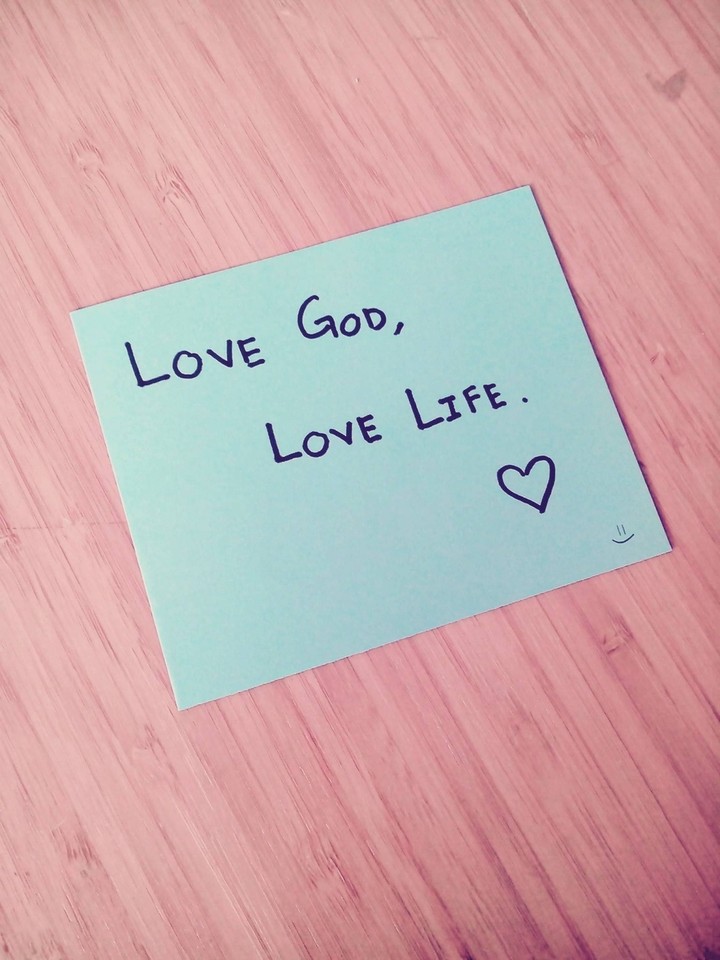 LOVE GOD,
LOVE LIFE.